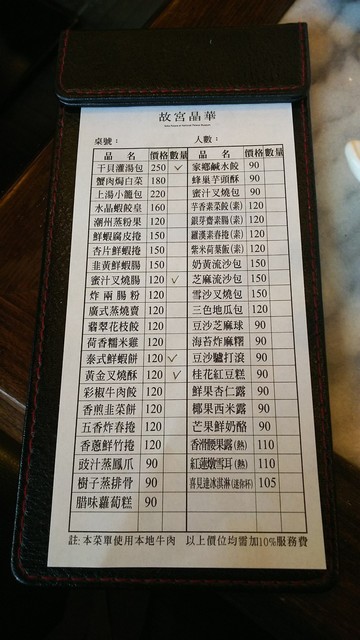 故宮晶華
桌號： 人數：
品名 價格 數量 品名 價格 數量
干貝灌湯包 250 ✓ 家鄉鹹水餃 90
蟹肉焗白菜 180 蜂巢芋頭酥 90
上湯小籠包 220 蜜汁叉燒包 90
水晶蝦餃皇 160 芋香素菜餃(素) 120
潮州蒸粉果 120 銀芽齋素腸(素) 120
鮮蝦腐皮捲 150 羅漢素春捲(素) 120
杏片鮮蝦捲 150 紫米荷葉飯(素) 120
韭黃鮮蝦腸 150 奶黃流沙包 150
蜜汁叉燒腸 120 ✓ 芝麻流沙包 150
炸兩腸粉 120 雪沙叉燒包 150
廣式蒸燒賣 120 三色地瓜包 120
翡翠花枝餃 120 豆沙芝麻球 90
荷香糯米雞 120 海苔炸麻糬 90
泰式鮮蝦餅 120 ✓ 豆沙驢打滾 90
黃金叉燒酥 120 ✓ 桂花紅豆糕 90
彩椒牛肉餃 120 鮮果杏仁露 90
香煎韭菜餅 120 椰果西米露 90
五香炸春捲 120 芒果鮮奶酪 90
香蔥鮮竹捲 120 香滑腰果露(熱) 110
豉汁蒸鳳爪 90 紅蓮燉雪耳(熱) 110
樹子蒸排骨 90 喜見達冰淇淋(迷你杯) 105
腊味蘿蔔糕 90
註:本菜單使用本地牛肉 以上價位均需加10%服務費